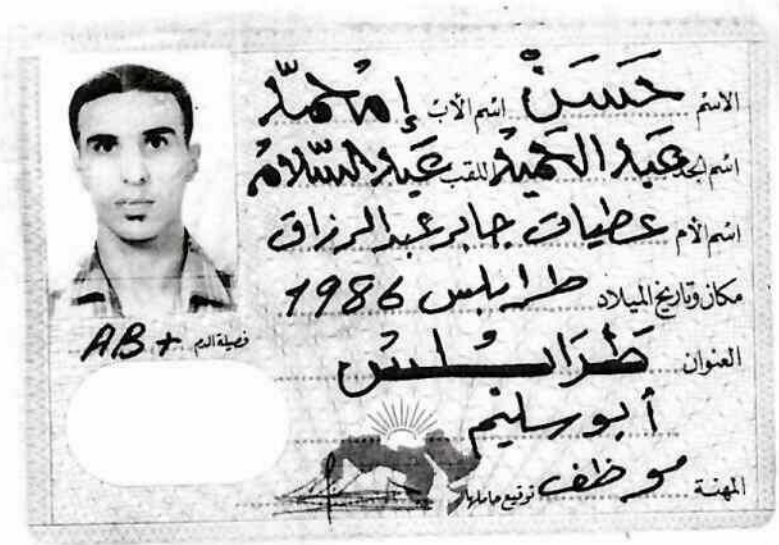 الاسم حَسَنْ اسم الأب إمْحمّد
اسم الجد عَبد الحَميدُ اللقب عَبد السّلامُ
اسم الأم عطيات جابر عبد الرزاق
مكان وتاريخ الميلاد طرابلس 1986
فصيلة الدم AB +
العنوان طَرَابُلسُ
أبو سليم
المهنة موظف توقيع حاملها